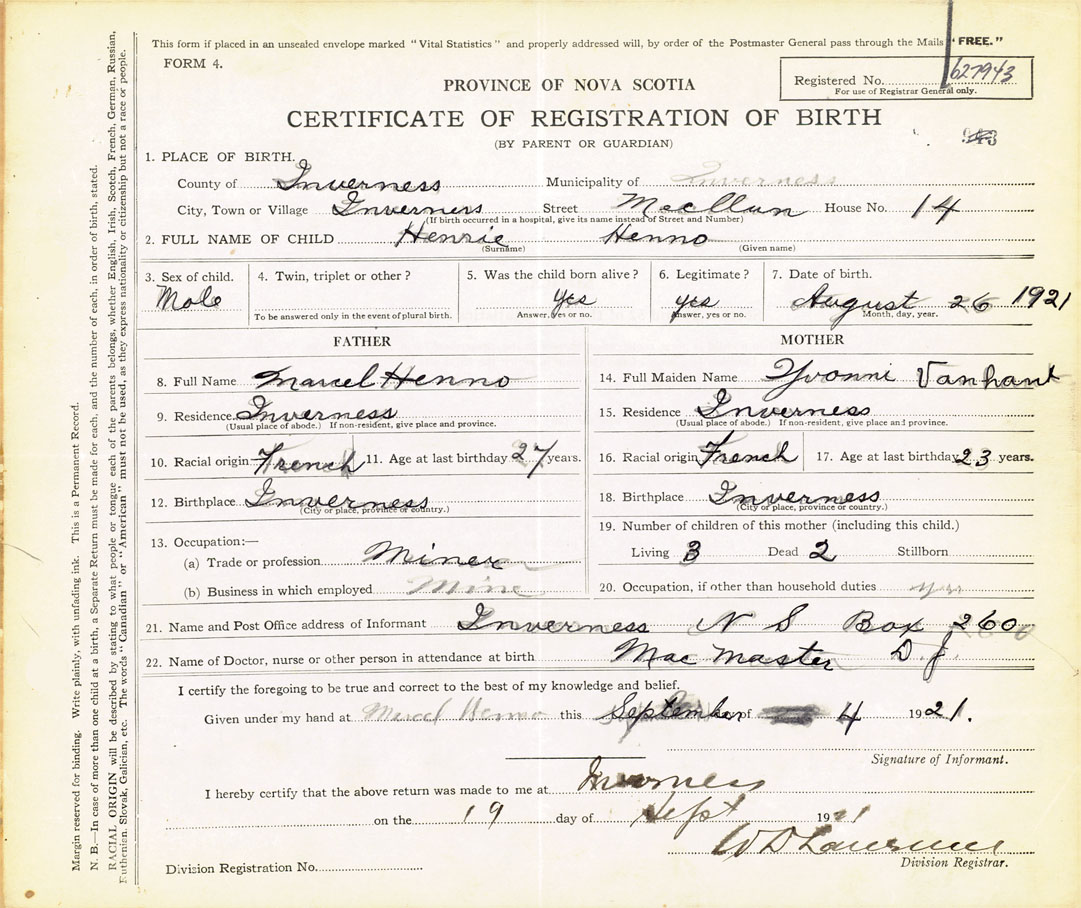 This form if placed in an unsealed envelope marked "Vital Statistics" and properly addressed will, by order of the Postmaster General pass through the Mails "FREE."
FORM 4.
Registered No. 627943
For use of Registrar General only.
PROVINCE OF NOVA SCOTIA
CERTIFICATE OF REGISTRATION OF BIRTH
(BY PARENT OR GUARDIAN)
1. PLACE OF BIRTH.
County of Inverness Municipality of Inverness
City, Town or Village Inverness Street House No. 14
(If birth occurred in a hospital, give its name instead of Street and Number)
2. FULL NAME OF CHILD Henrie Henno
(Surname) (Given name)
3. Sex of child. 4. Twin, triplet or other? 5. Was the child born alive? 6. Legitimate? 7. Date of birth.
Male yes yes August 26 1921
To be answered only in the event of plural birth. Answer, yes or no. Answer, yes or no. Month, day, year.
FATHER
8. Full Name Marcel Henno
9. Residence Inverness
(Usual place of abode.) If non-resident, give place and province.
10. Racial origin French 11. Age at last birthday 27 years.
12. Birthplace Inverness
(City or place, province or country.)
13. Occupation:—
(a) Trade or profession Miner
(b) Business in which employed Mine
MOTHER
14. Full Maiden Name Yvonni Vanhant
15. Residence Inverness
(Usual place of abode.) If non-resident, give place and province.
16. Racial origin French 17. Age at last birthday 23 years.
18. Birthplace Inverness
(City or place, province or country.)
19. Number of children of this mother (including this child.)
Living 3 Dead 2 Stillborn
20. Occupation, if other than household duties yes
21. Name and Post Office address of Informant Inverness N S Box 260
22. Name of Doctor, nurse or other person in attendance at birth Mac Master D. J.
I certify the foregoing to be true and correct to the best of my knowledge and belief.
Given under my hand at Marcel Henno this September of 4 1921.
Signature of Informant.
I hereby certify that the above return was made to me at Inverness
on the 19 day of Sept 1921
W D Lawrence
Division Registrar.
Division Registration No.
Margin reserved for binding. Write plainly, with unfading ink. This is a Permanent Record.
N. B.—In case of more than one child at a birth, a Separate Return must be made for each, and the number of each, in order of birth, stated.
RACIAL ORIGIN will be described by stating to what people or tongue each of the parents belongs, whether English, Irish, Scotch, French, German, Russian,
Ruthenian, Slovak, Galician, etc. The words "Canadian" or "American" must not be used, as they express nationality or citizenship but not a race or people.